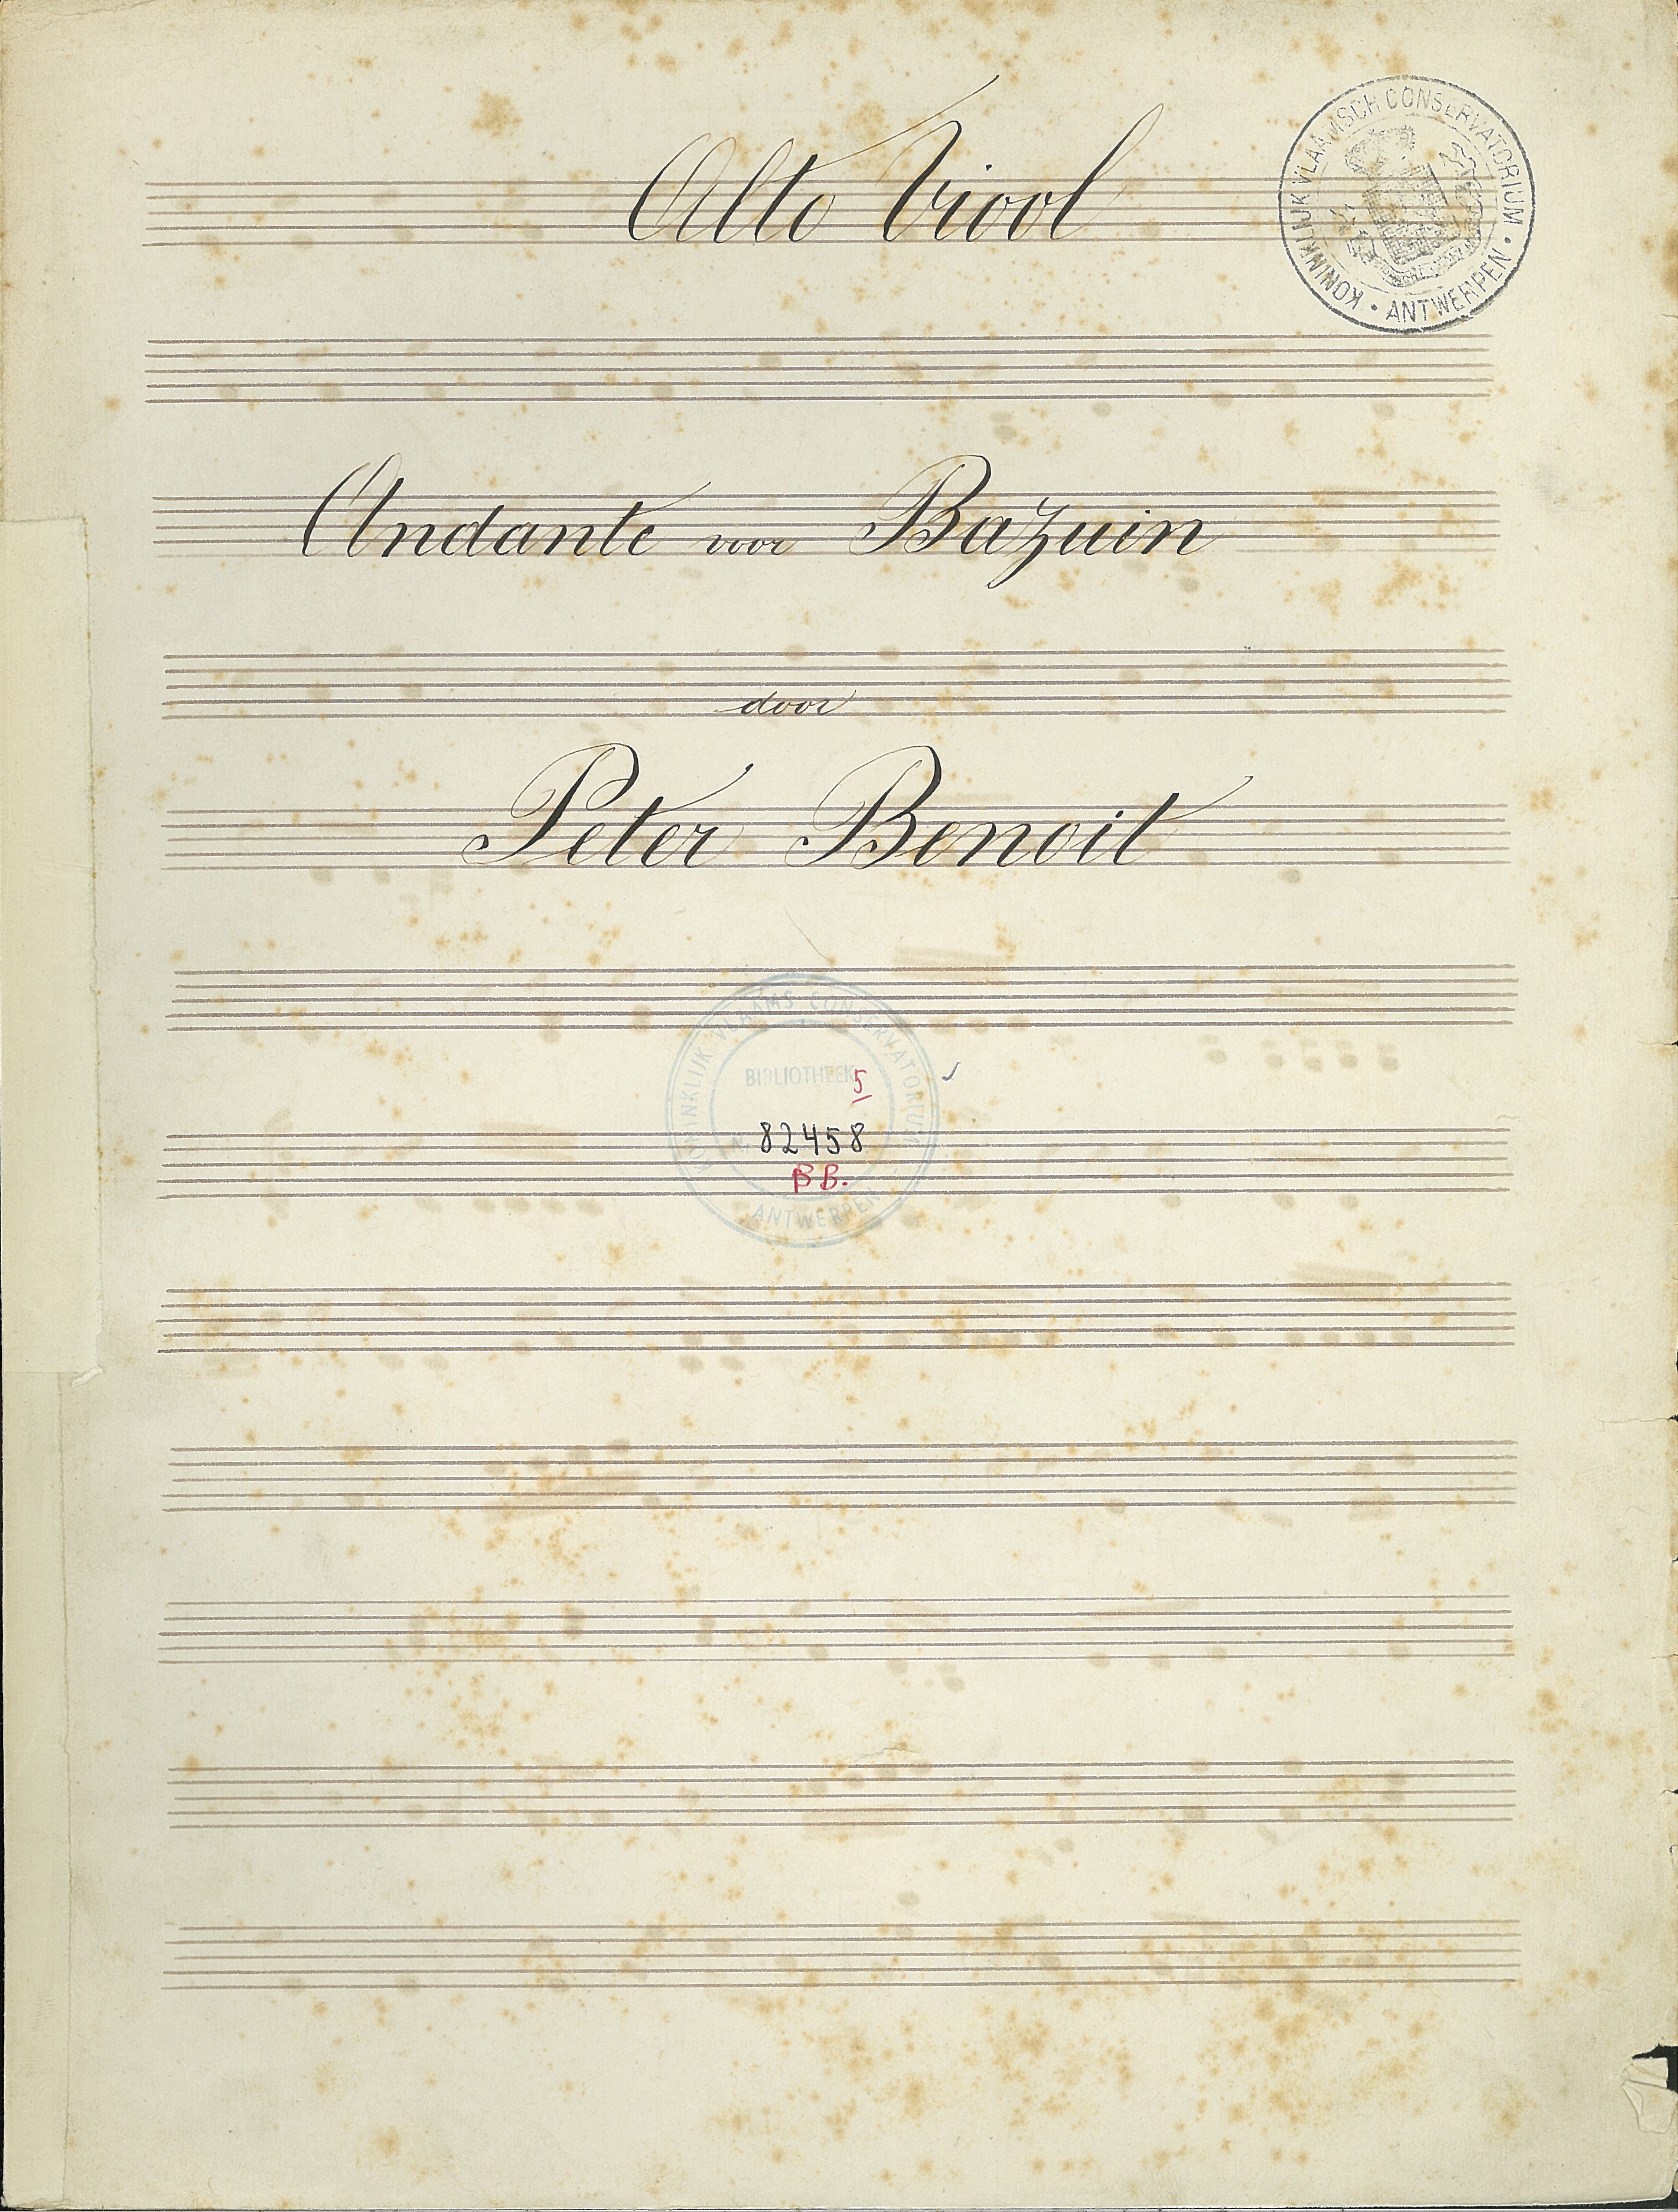 Alto Viool
KONINKLIJK VLAAMSCH CONSERVATORIUM • ANTWERPEN •
Andante voor Bazuin
door
Peter Benoit
KONINKLIJK VLAAMS CONSERVATORIUM
BIBLIOTHEEK 5
82458
BB.
ANTWERPEN